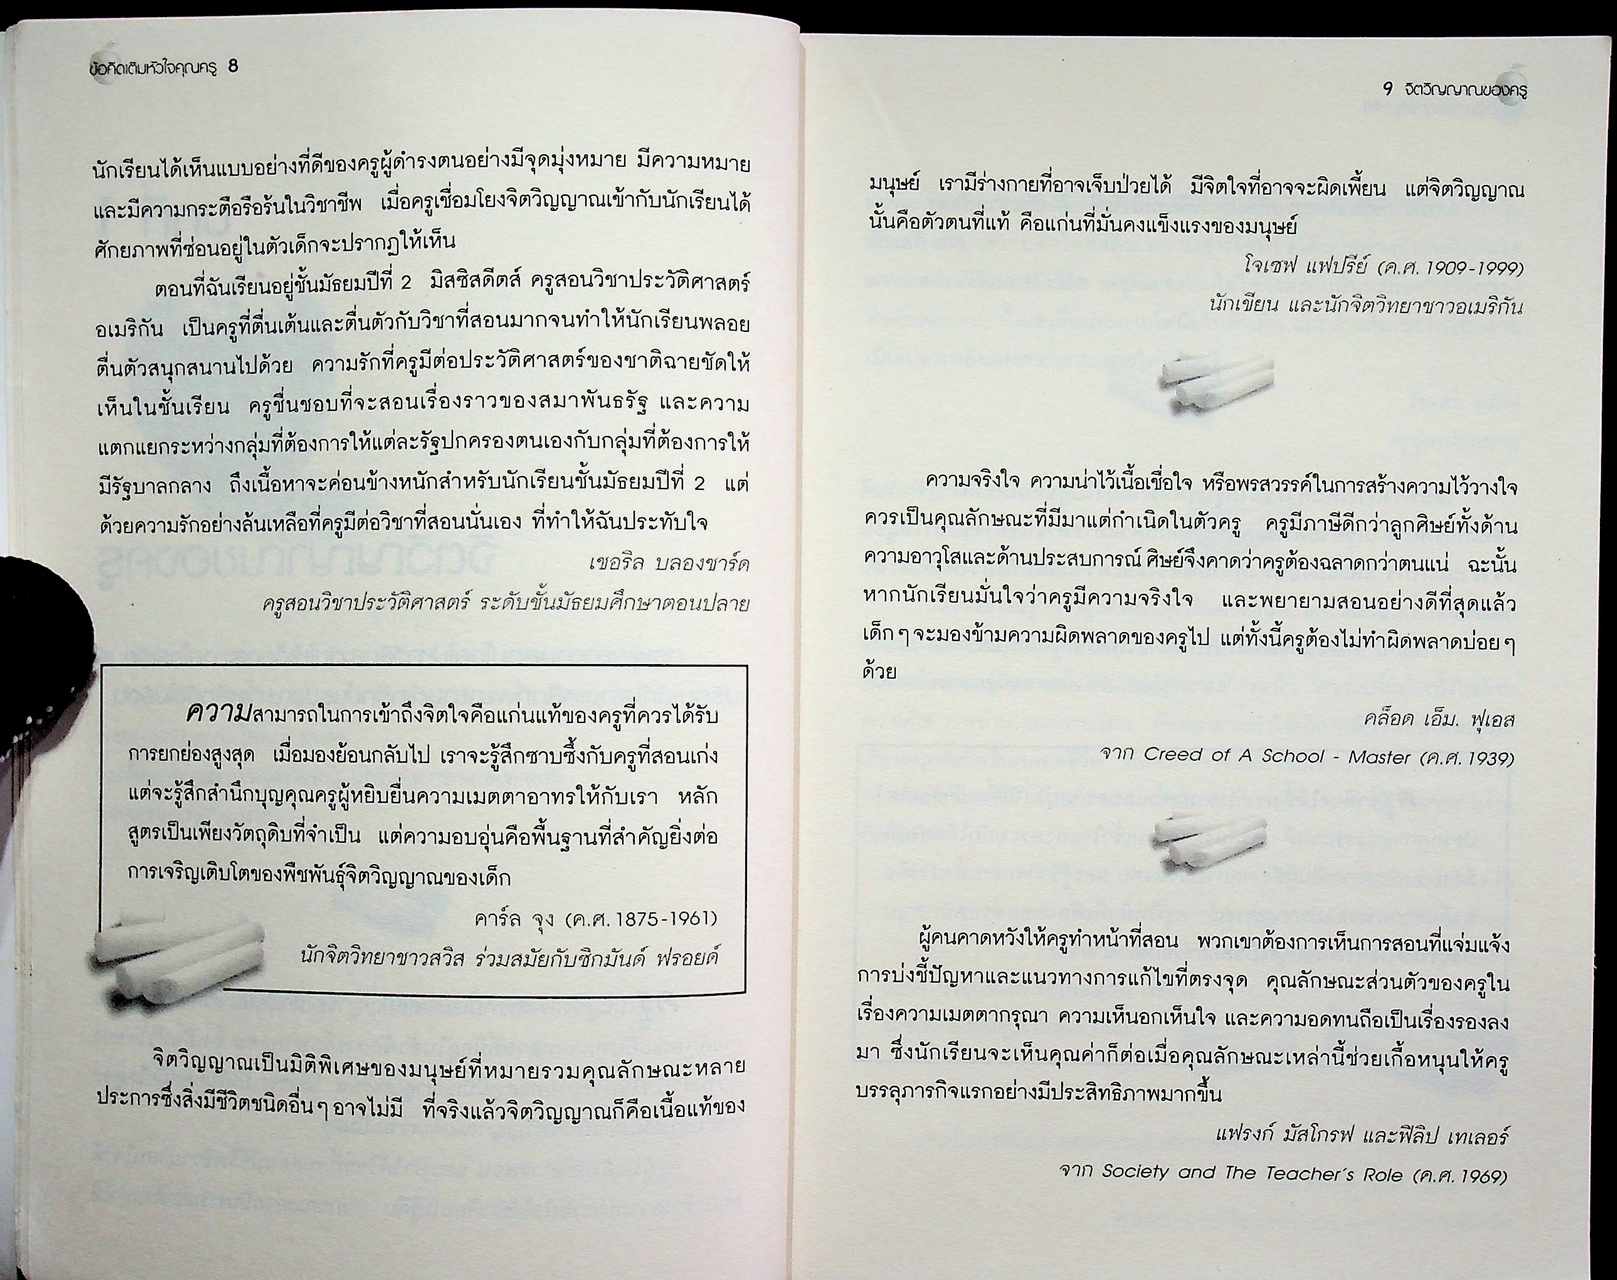 ข้อคิดเติมหัวใจคุณครู 8
นักเรียนได้เห็นแบบอย่างที่ดีของครูผู้ดำรงตนอย่างมีจุดมุ่งหมาย มีความหมาย
และมีความกระตือรือร้นในวิชาชีพ เมื่อครูเชื่อมโยงจิตวิญญาณเข้ากับนักเรียนได้
ศักยภาพที่ซ่อนอยู่ในตัวเด็กจะปรากฏให้เห็น
ตอนที่ฉันเรียนอยู่ชั้นมัธยมปีที่ 2 มิสซิสดีตส์ ครูสอนวิชาประวัติศาสตร์
อเมริกัน เป็นครูที่ตื่นเต้นและตื่นตัวกับวิชาที่สอนมากจนทำให้นักเรียนพลอย
ตื่นตัวสนุกสนานไปด้วย ความรักที่ครูมีต่อประวัติศาสตร์ของชาติฉายชัดให้
เห็นในชั้นเรียน ครูชื่นชอบที่จะสอนเรื่องราวของสมาพันธรัฐ และความ
แตกแยกระหว่างกลุ่มที่ต้องการให้แต่ละรัฐปกครองตนเองกับกลุ่มที่ต้องการให้
มีรัฐบาลกลาง ถึงเนื้อหาจะค่อนข้างหนักสำหรับนักเรียนชั้นมัธยมปีที่ 2 แต่
ด้วยความรักอย่างล้นเหลือที่ครูมีต่อวิชาที่สอนนั่นเอง ที่ทำให้ฉันประทับใจ
เชอริล บลองชาร์ด
ครูสอนวิชาประวัติศาสตร์ ระดับชั้นมัธยมศึกษาตอนปลาย
ความสามารถในการเข้าถึงจิตใจคือแก่นแท้ของครูที่ควรได้รับ
การยกย่องสูงสุด เมื่อมองย้อนกลับไป เราจะรู้สึกซาบซึ้งกับครูที่สอนเก่ง
แต่จะรู้สึกสำนึกบุญคุณครูผู้หยิบยื่นความเมตตาอาทรให้กับเรา หลัก
สูตรเป็นเพียงวัตถุดิบที่จำเป็น แต่ความอบอุ่นคือพื้นฐานที่สำคัญยิ่งต่อ
การเจริญเติบโตของพืชพันธุ์จิตวิญญาณของเด็ก
คาร์ล จุง (ค.ศ. 1875-1961)
นักจิตวิทยาชาวสวิส ร่วมสมัยกับซิกมันด์ ฟรอยด์
จิตวิญญาณเป็นมิติพิเศษของมนุษย์ที่หมายรวมคุณลักษณะหลาย
ประการซึ่งสิ่งมีชีวิตชนิดอื่นๆ อาจไม่มี ที่จริงแล้วจิตวิญญาณก็คือเนื้อแท้ของ
9 จิตวิญญาณของครู
มนุษย์ เรามีร่างกายที่อาจเจ็บป่วยได้ มีจิตใจที่อาจจะผิดเพี้ยน แต่จิตวิญญาณ
นั้นคือตัวตนที่แท้ คือแก่นที่มั่นคงแข็งแรงของมนุษย์
โจเซฟ แฟปรีย์ (ค.ศ. 1909-1999)
นักเขียน และนักจิตวิทยาชาวอเมริกัน
ความจริงใจ ความน่าไว้เนื้อเชื่อใจ หรือพรสวรรค์ในการสร้างความไว้วางใจ
ควรเป็นคุณลักษณะที่มีมาแต่กำเนิดในตัวครู ครูมีภาษีดีกว่าลูกศิษย์ทั้งด้าน
ความอาวุโสและด้านประสบการณ์ ศิษย์จึงคาดว่าครูต้องฉลาดกว่าตนแน่ ฉะนั้น
หากนักเรียนมั่นใจว่าครูมีความจริงใจ และพยายามสอนอย่างดีที่สุดแล้ว
เด็กๆ จะมองข้ามความผิดพลาดของครูไป แต่ทั้งนี้ครูต้องไม่ทำผิดพลาดบ่อยๆ
ด้วย
คล็อด เอ็ม. ฟุเอส
จาก Creed of A School - Master (ค.ศ. 1939)
ผู้คนคาดหวังให้ครูทำหน้าที่สอน พวกเขาต้องการเห็นการสอนที่แจ่มแจ้ง
การบ่งชี้ปัญหาและแนวทางการแก้ไขที่ตรงจุด คุณลักษณะส่วนตัวของครูใน
เรื่องความเมตตากรุณา ความเห็นอกเห็นใจ และความอดทนถือเป็นเรื่องรองลง
มา ซึ่งนักเรียนจะเห็นคุณค่าก็ต่อเมื่อคุณลักษณะเหล่านี้ช่วยเกื้อหนุนให้ครู
บรรลุภารกิจแรกอย่างมีประสิทธิภาพมากขึ้น
แฟรงก์ มัสโกรฟ และฟิลิป เทเลอร์
จาก Society and The Teacher's Role (ค.ศ. 1969)